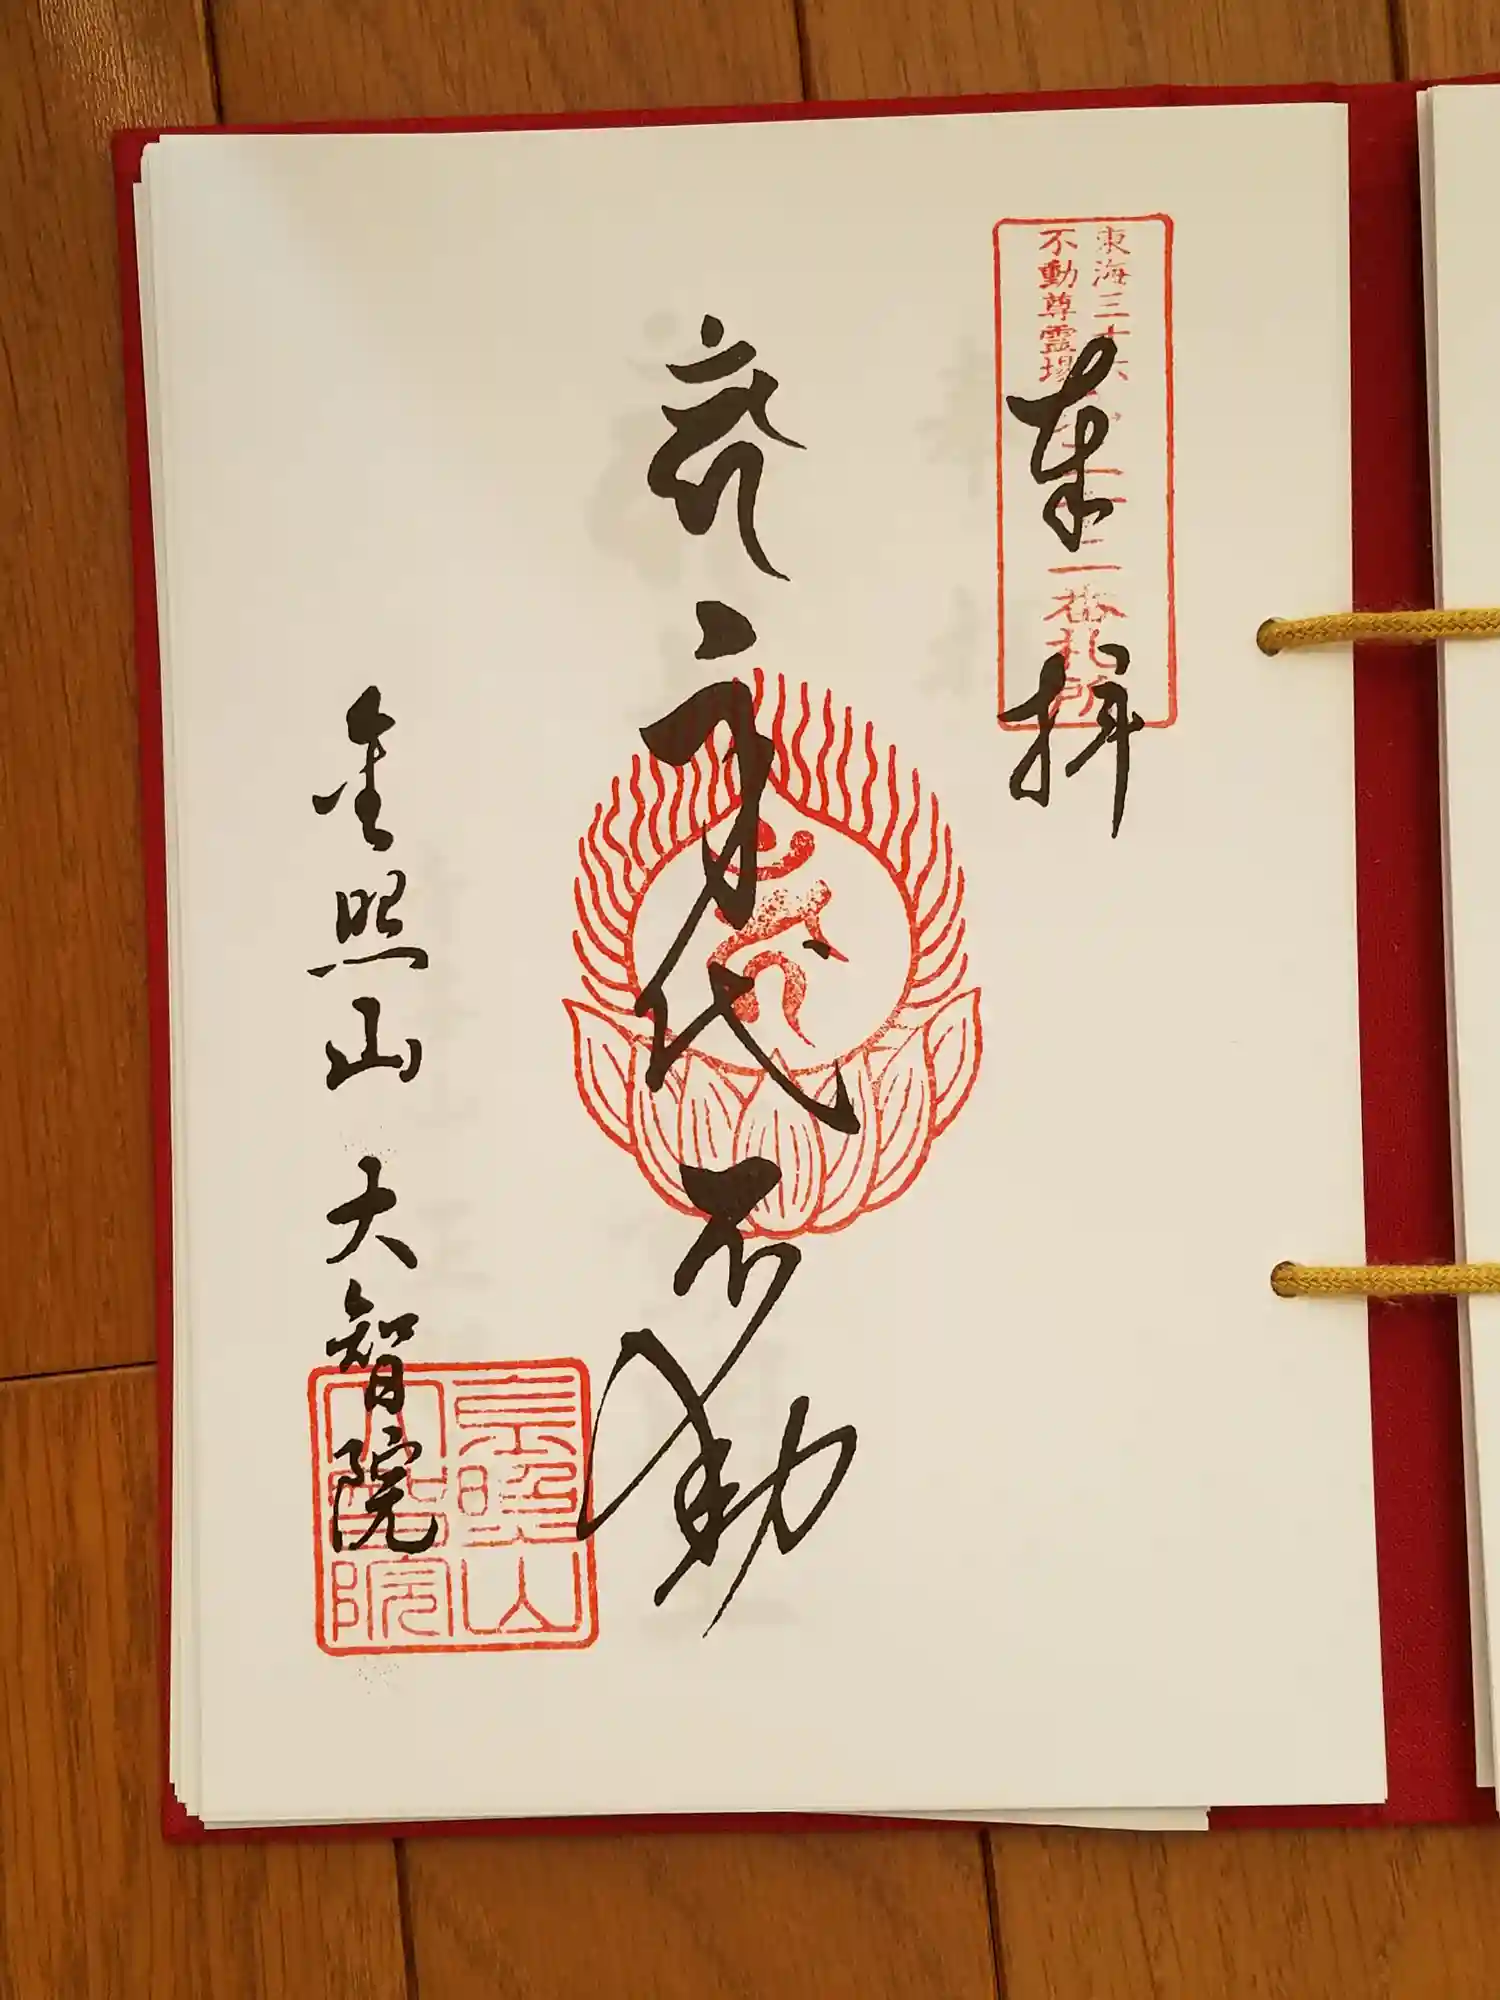 東海三十六
不動尊霊場
番札所
奉拝
身代不動
金照山 大智院
金照山
大智院